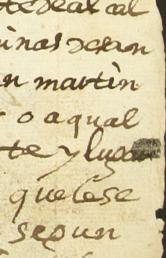 te dear cal
uinas deson
an martin
o a qual
te y lugar
que le se
segun